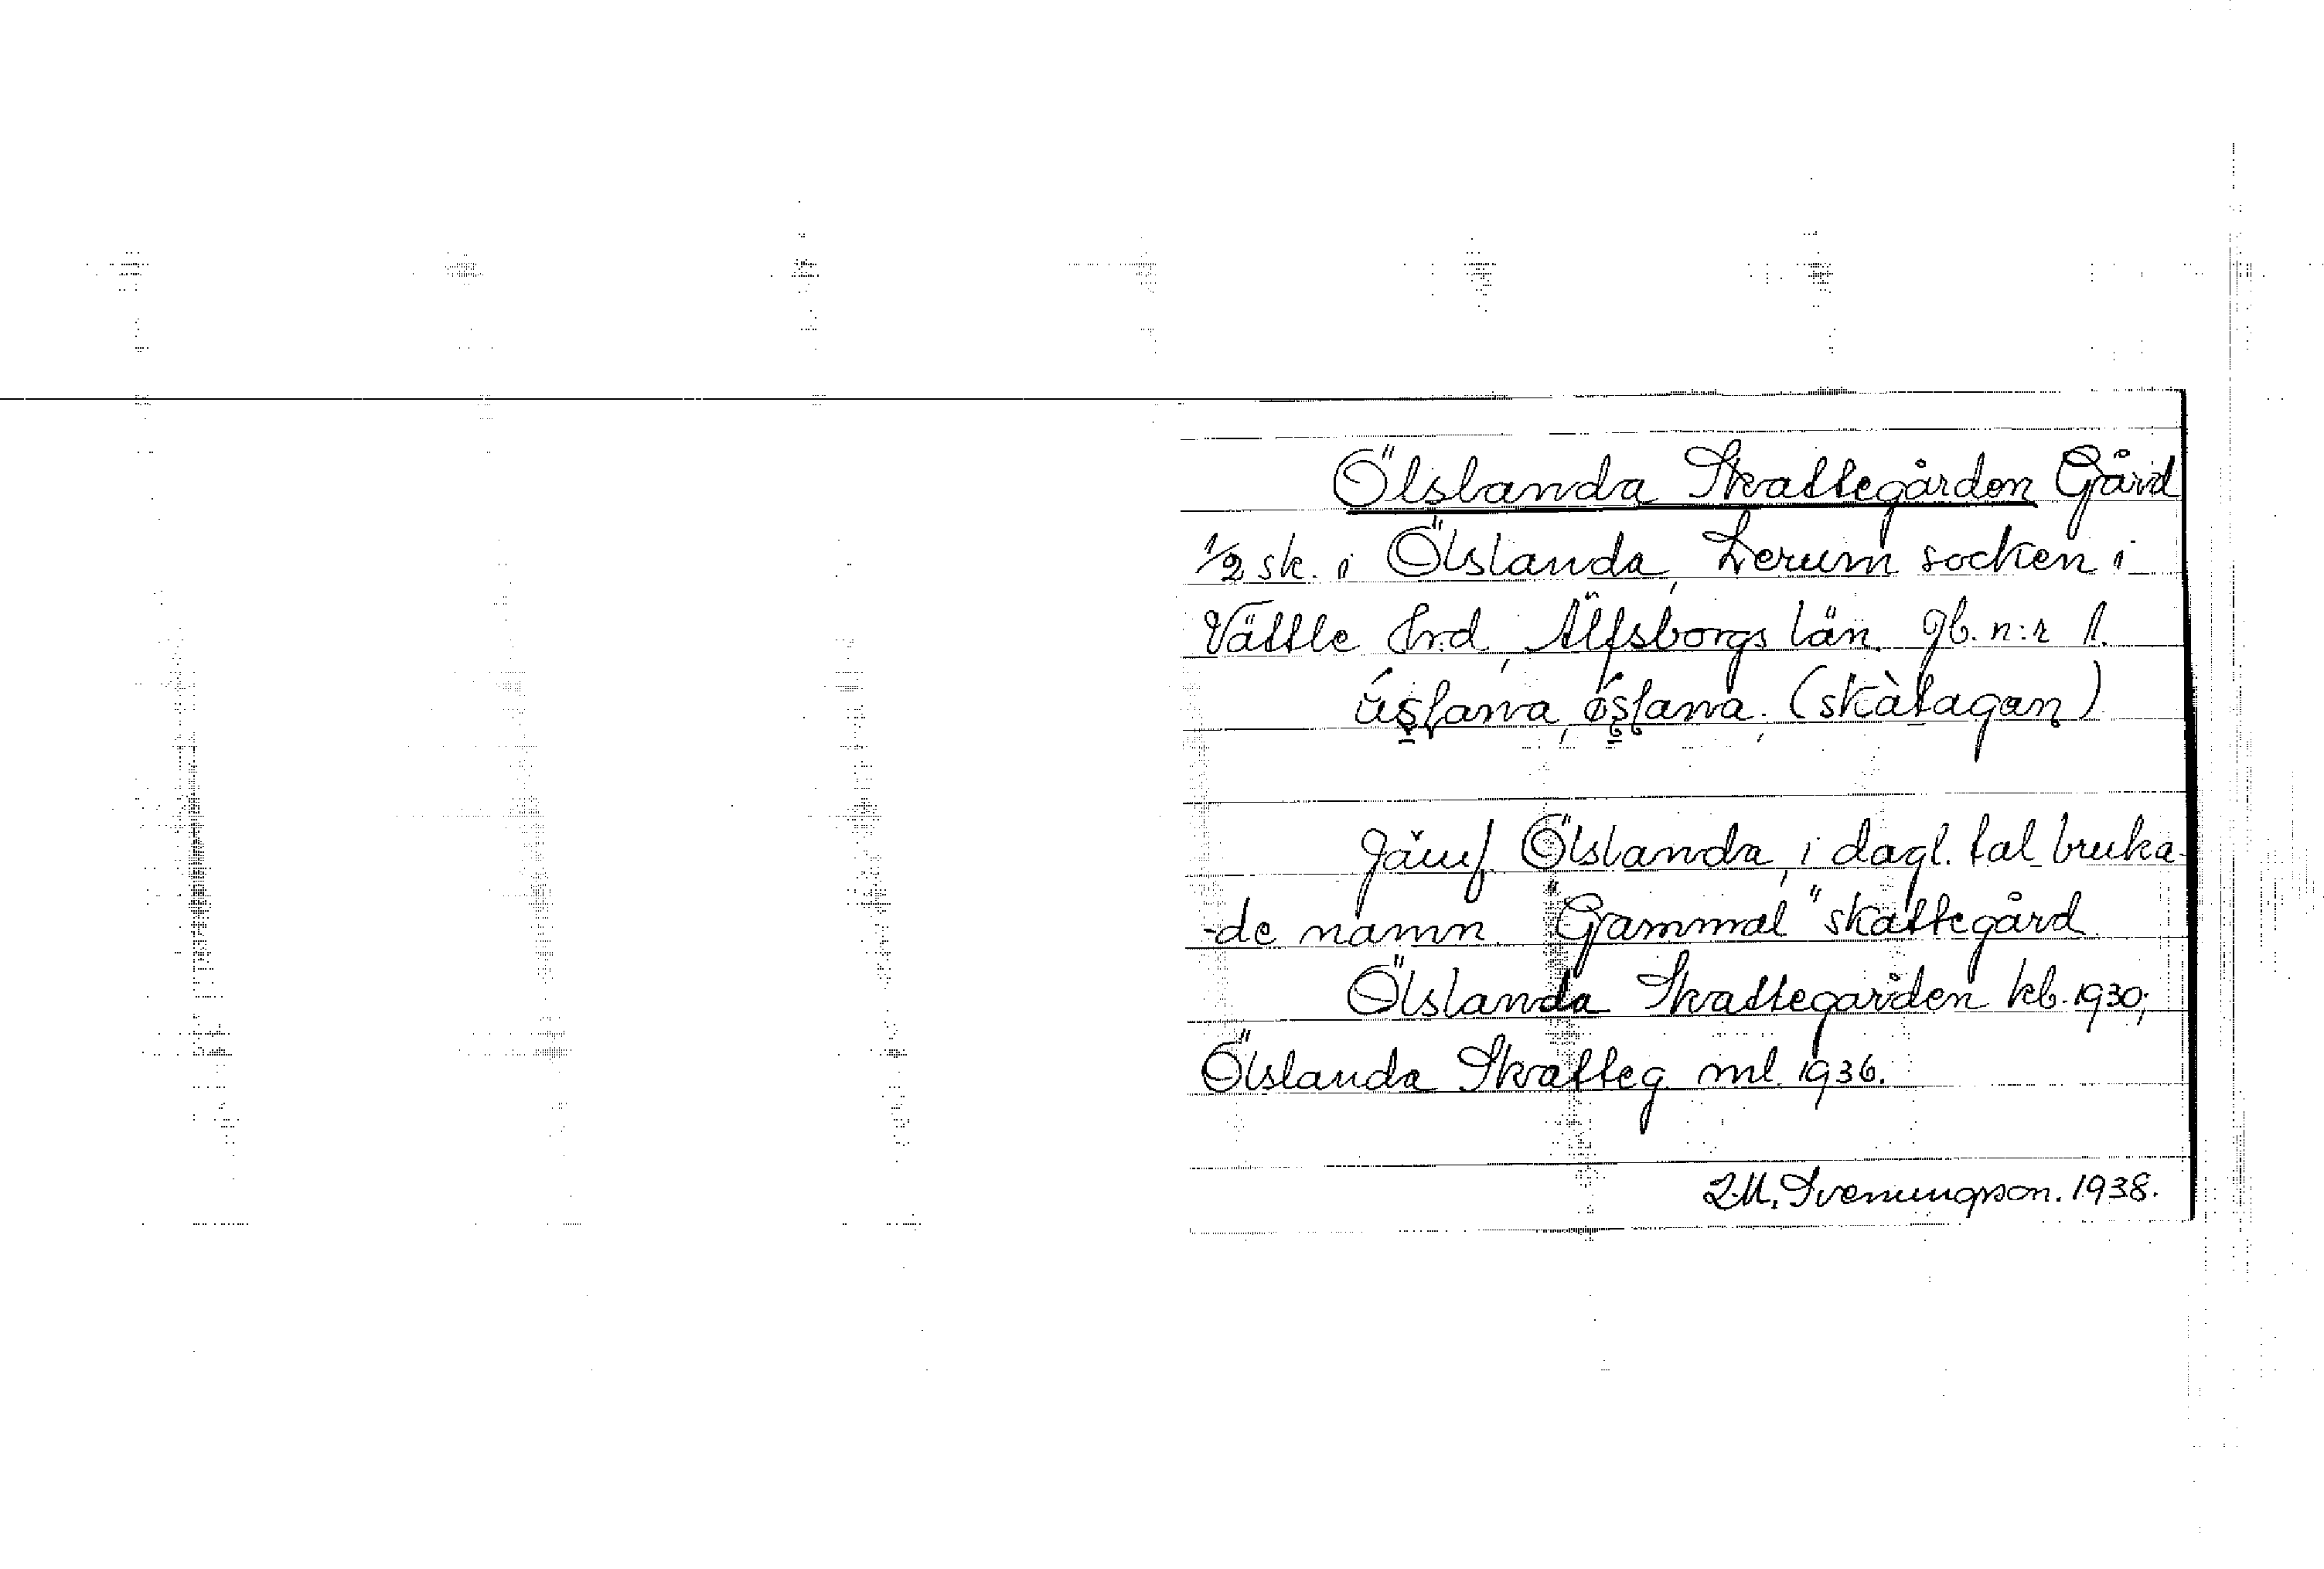 Ölslanda Skattegården Gård
1/2 sk. i Ölslanda, Lerum socken i
Vättle Hrd, Älfsborgs län. gb. n:r 1.
(skàtagan)
Jämf. Ölslanda, i dagl. tal bruka-
-de namn. "Gammal" skattegård
Ölslanda Skattegården kb. 1930;
Ölslanda Skatteg. ml. 1936.
Svenungson. 1938.